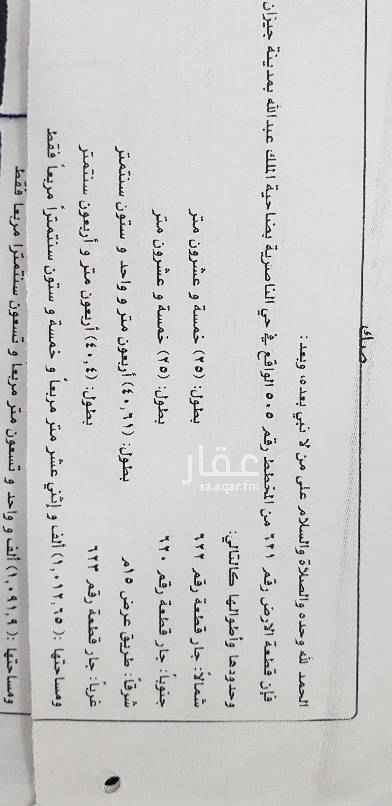 صك
الحمد لله وحده والصلاة والسلام على من لا نبي بعده، وبعد:
فإن قطعة الارض رقم ٦٢١ من المخطط رقم ٥٠٥ الواقع في حي الناصرية بضاحية الملك عبدالله بمدينة جيزان
وحدودها وأطوالها كالتالي:
شمالاً: جار قطعة رقم ٦٢٢ بطول: (٢٥) خمسة و عشرون متر
جنوباً: جار قطعة رقم ٦٢٠ بطول: (٢٥) خمسة و عشرون متر
شرقاً: طريق عرض ١٥م بطول: (٤٠,٦١) أربعون متر و واحد و ستون سنتمتر
غرباً: جار قطعة رقم ٦٢٣ بطول: (٤٠,٤) أربعون متر و أربعون سنتمتر
ومساحتها: (١,٠١٢,٦٥) ألف و إثني عشر متر مربعاً و خمسة و ستون سنتمتراً مربعاً فقط
ومساحتها: (١,٠٩١,٩) ألف و واحد و تسعون متر مربعا و تسعون سنتمترا مربعا فقط
عقار
sa.aqar.fm